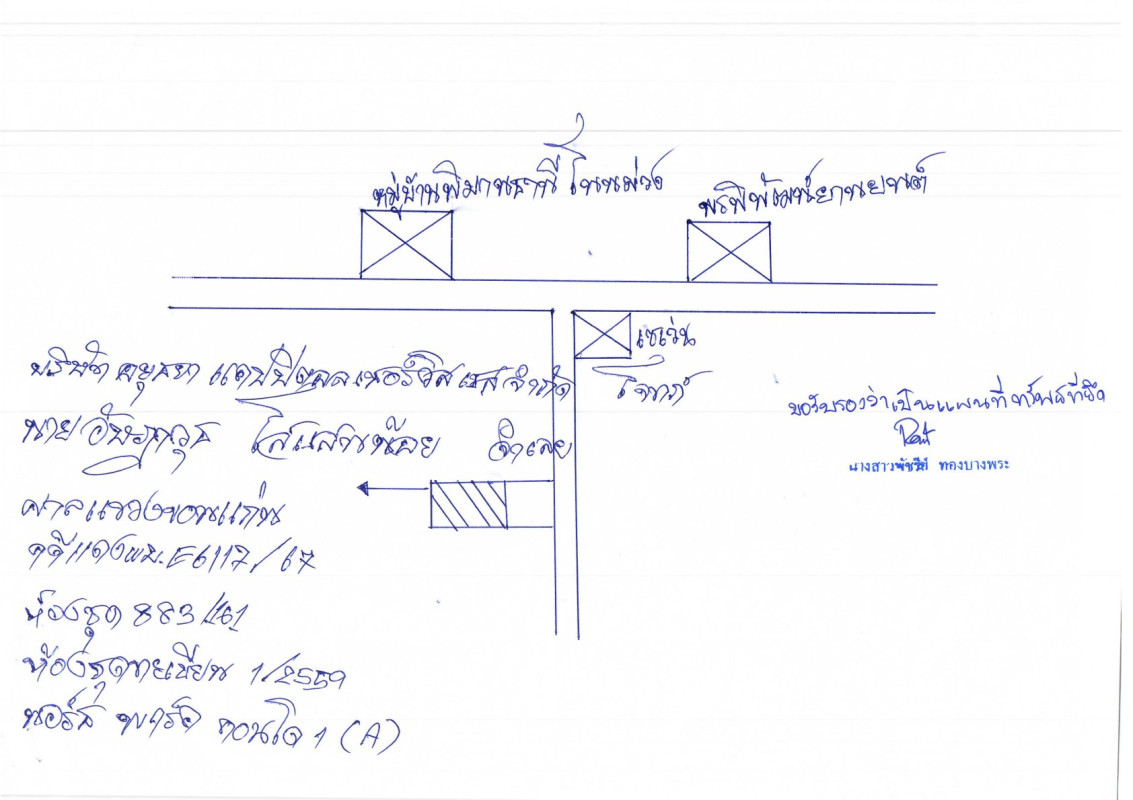 หมู่บ้านพิมานธานี โนนม่วง
พรพิพัฒน์ยานยนต์
เซเว่น
บริษัท อยุธยา แคปปิตอล เซอร์วิสเซส จำกัด โจทก์
นาย โสแสนน้อย จำเลย
ศาลแขวงขอนแก่น
คดีแดง ผบ.E6117/67
ห้องชุด 883/161
ห้องชุดทะเบียน 1/2559
นอร์ธ พาร์ค คอนโด 1 (A)
ขอรับรองว่าเป็นแผนที่ทรัพย์ที่ยึด
นางสาวพัชรีย์ ทองบางพระ